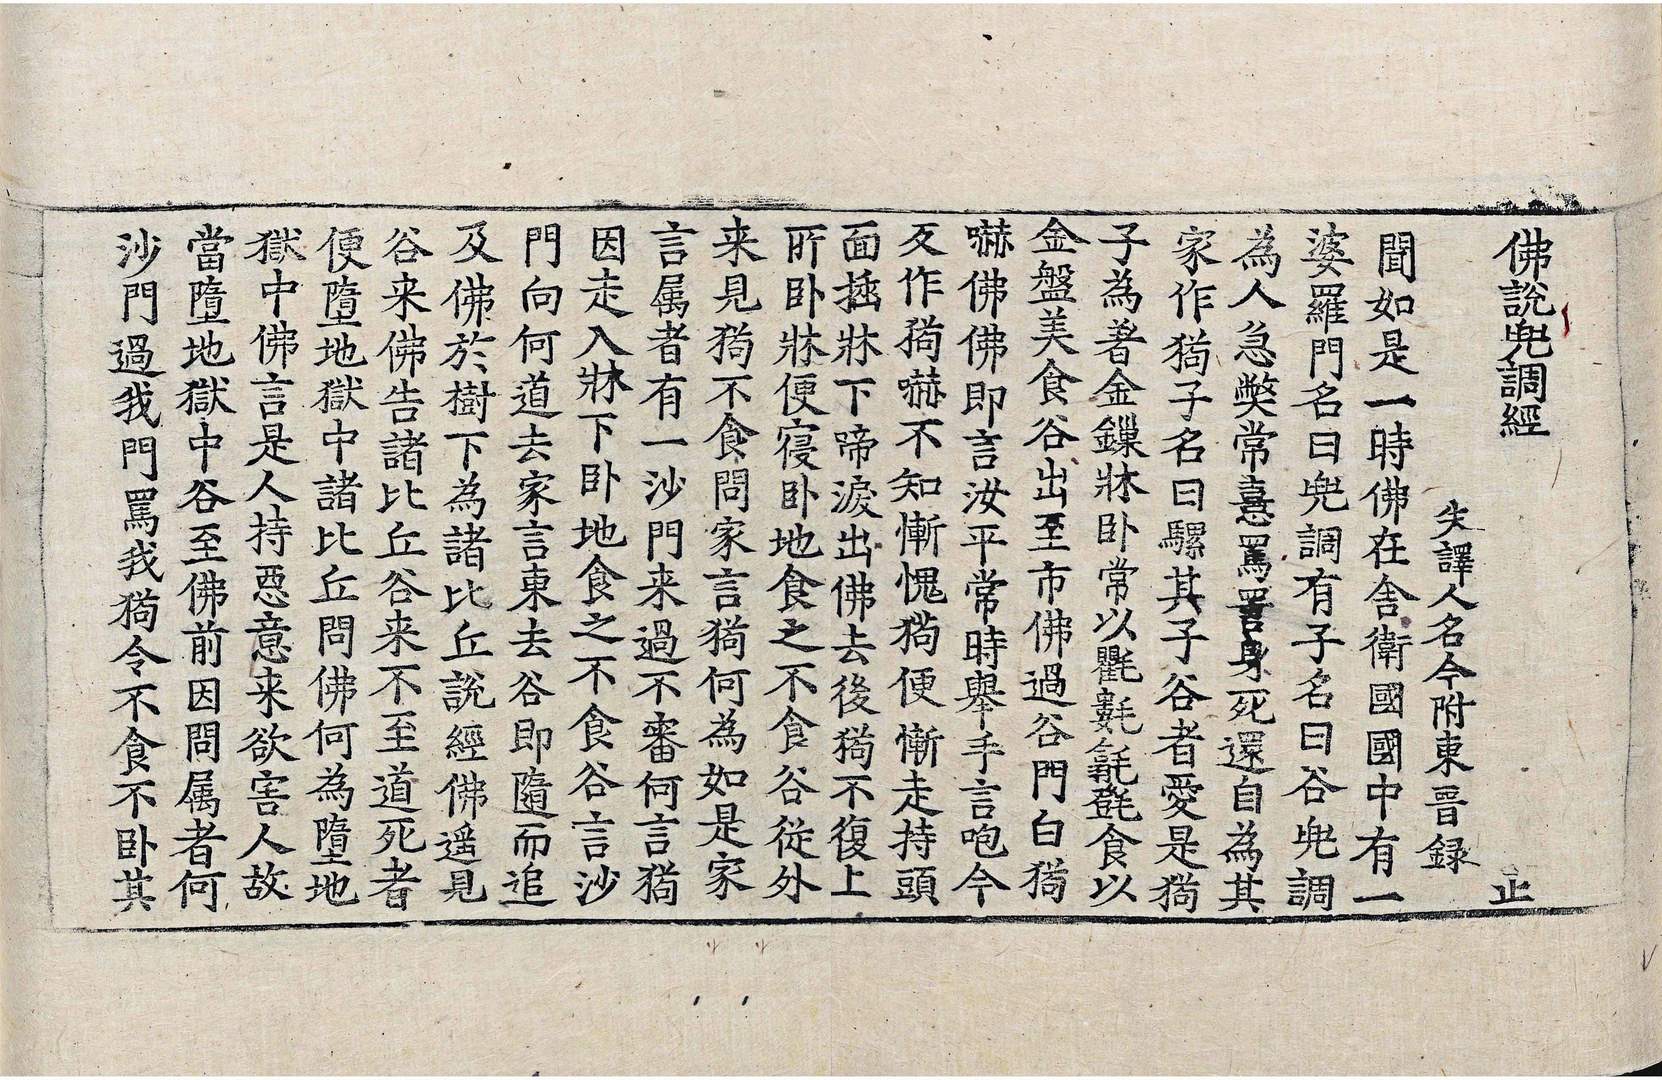 佛說兜調經 止
失譯人名今附東晉録
聞如是一時佛在舍衛國國中有一
婆羅門名曰兜調有子名曰谷兜調
為人急弊常憙罵詈身死還自為其
家作猗子名曰騾其子谷者愛是猗
子為著金鏁牀卧常以氍毹㲪㲪食以
金盤美食谷出至市佛過谷門白猗
嚇佛佛即言汝平常時舉手言咆今
反作猗嚇不知慚愧猗便慚走持頭
面插牀下啼淚出佛去後猗不復上
所卧牀便寑卧地食之不食谷従外
来見猗不食問家言猗何為如是家
言属者有一沙門来過不審何言猗
因走入牀下卧地食之不食谷言沙
門向何道去家言東去谷即隨而追
及佛於樹下為諸比丘說經佛遥見
谷来佛告諸比丘谷来不至道死者
便墮地獄中諸比丘問佛何為墮地
獄中佛言是人持惡意来欲害人故
當墮地獄中谷至佛前因問属者何
沙門過我門罵我猗令不食不卧其